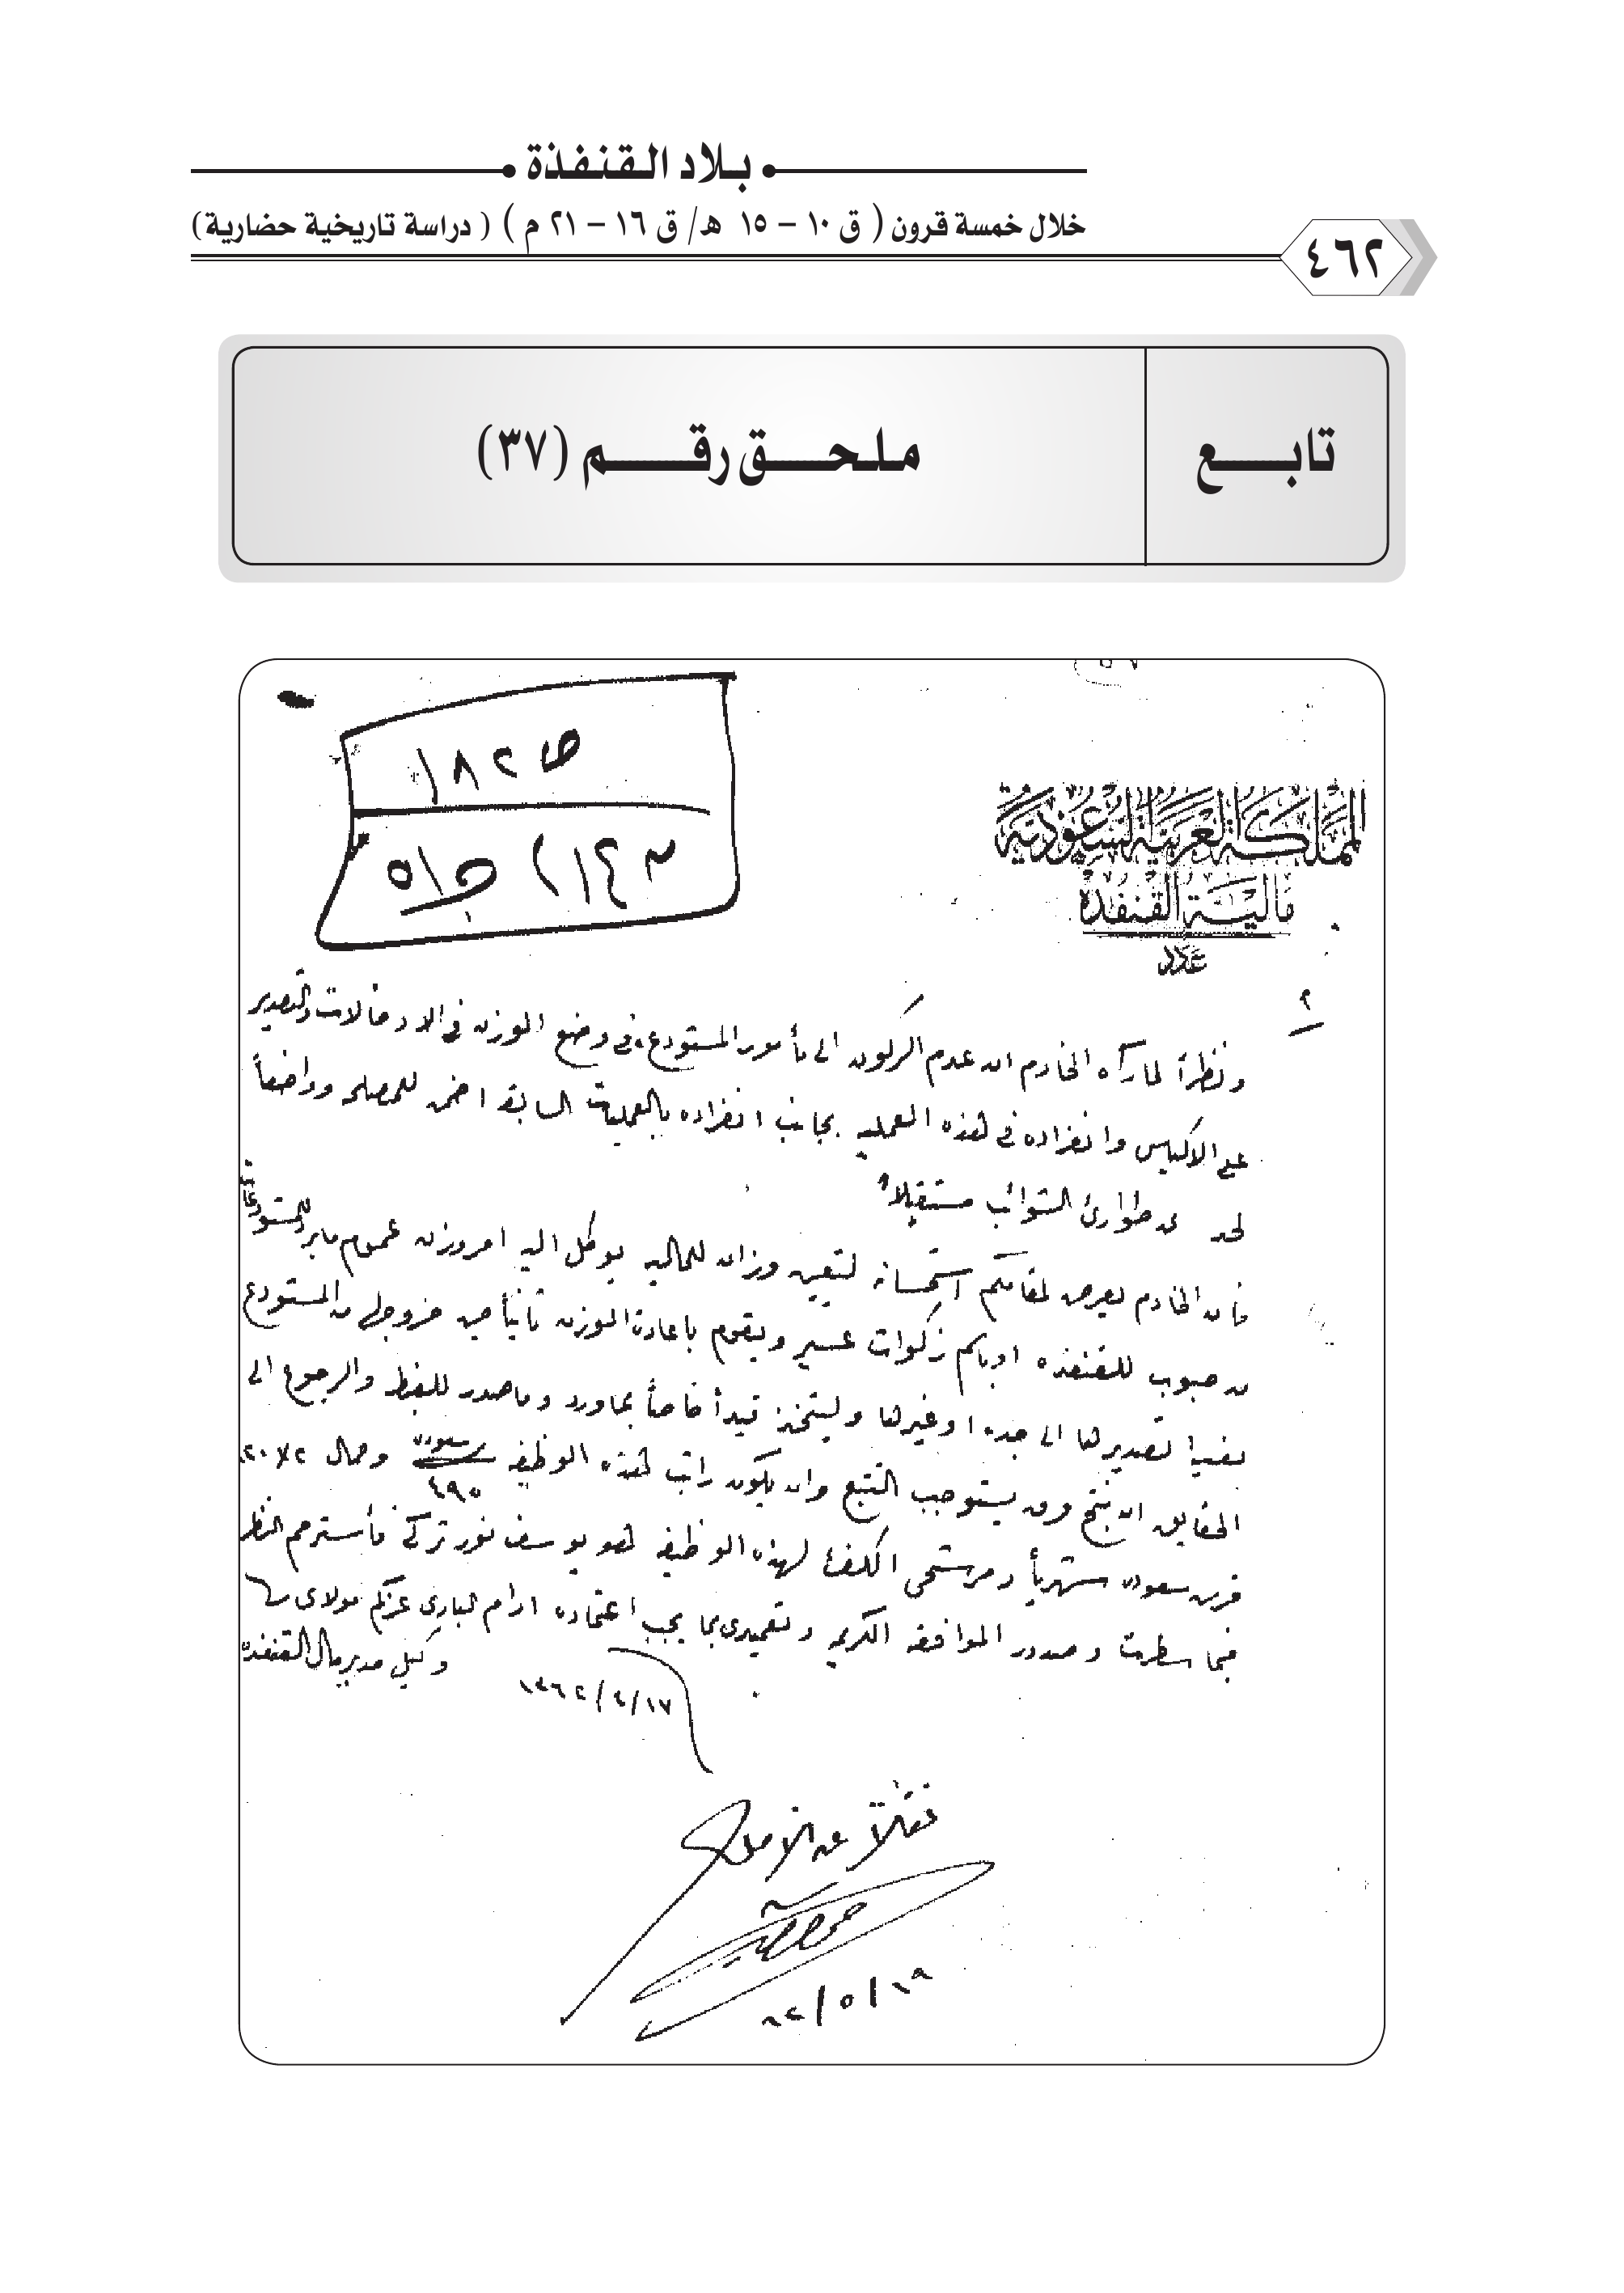 بلاد القنفذة
خلال خمسة قرون ( ق ١٠ – ١٥ هـ/ ق ١٦ – ٢١ م ) ( دراسة تاريخية حضارية)
٤٦٢
تابع
ملحق رقم (٣٧)
ص ١٨٢
المملكة العربية السعودية
مالية القنفذة
عدد
٢
ونظراً لما رآه الخادم ان عدم الركون الى مأمور المستودع في وضع الوزن في الادخالات والتصدير
على الاكياس وانفراده في هذه العمليه بجانب انفراده بالعمليات السابقة اضمن للمصلحه وواضعاً
لحد طوارئ الشوائب مستقبلا
فان الخادم يعرض لمقامكم استحسانه لتعيين وزان للماليه يوكل اليه امر وزن عموم ما يرد للمستودعات
من حبوب للقنفذه او باسم زكوات عسير ويقوم باعادة الوزن ثانياً حين خروجها من المستودع
تصديرها الى جده او غيرها وليتخذ قيداً خاصاً بما ورد وما صدر للضبط والرجوع الى
الحقايق ان نتج فرق يستوجب التتبع وان يكون راتب هذه الوظيفه
قرش سعودى شهرياً ومرشحى الكفؤ لهذه الوظيفه هو يوسف نور تركي فأسترحم النظر
فيما سطرت وصدور الموافقه الكريمه وتعميدى بما يجب اعتماده ادام البارى عزكم مولاى
وكيل مدير مال القنفذه
١٧/٤/١٣٦٢
نقلاً عن الأصل
١٩/٥/٦٢